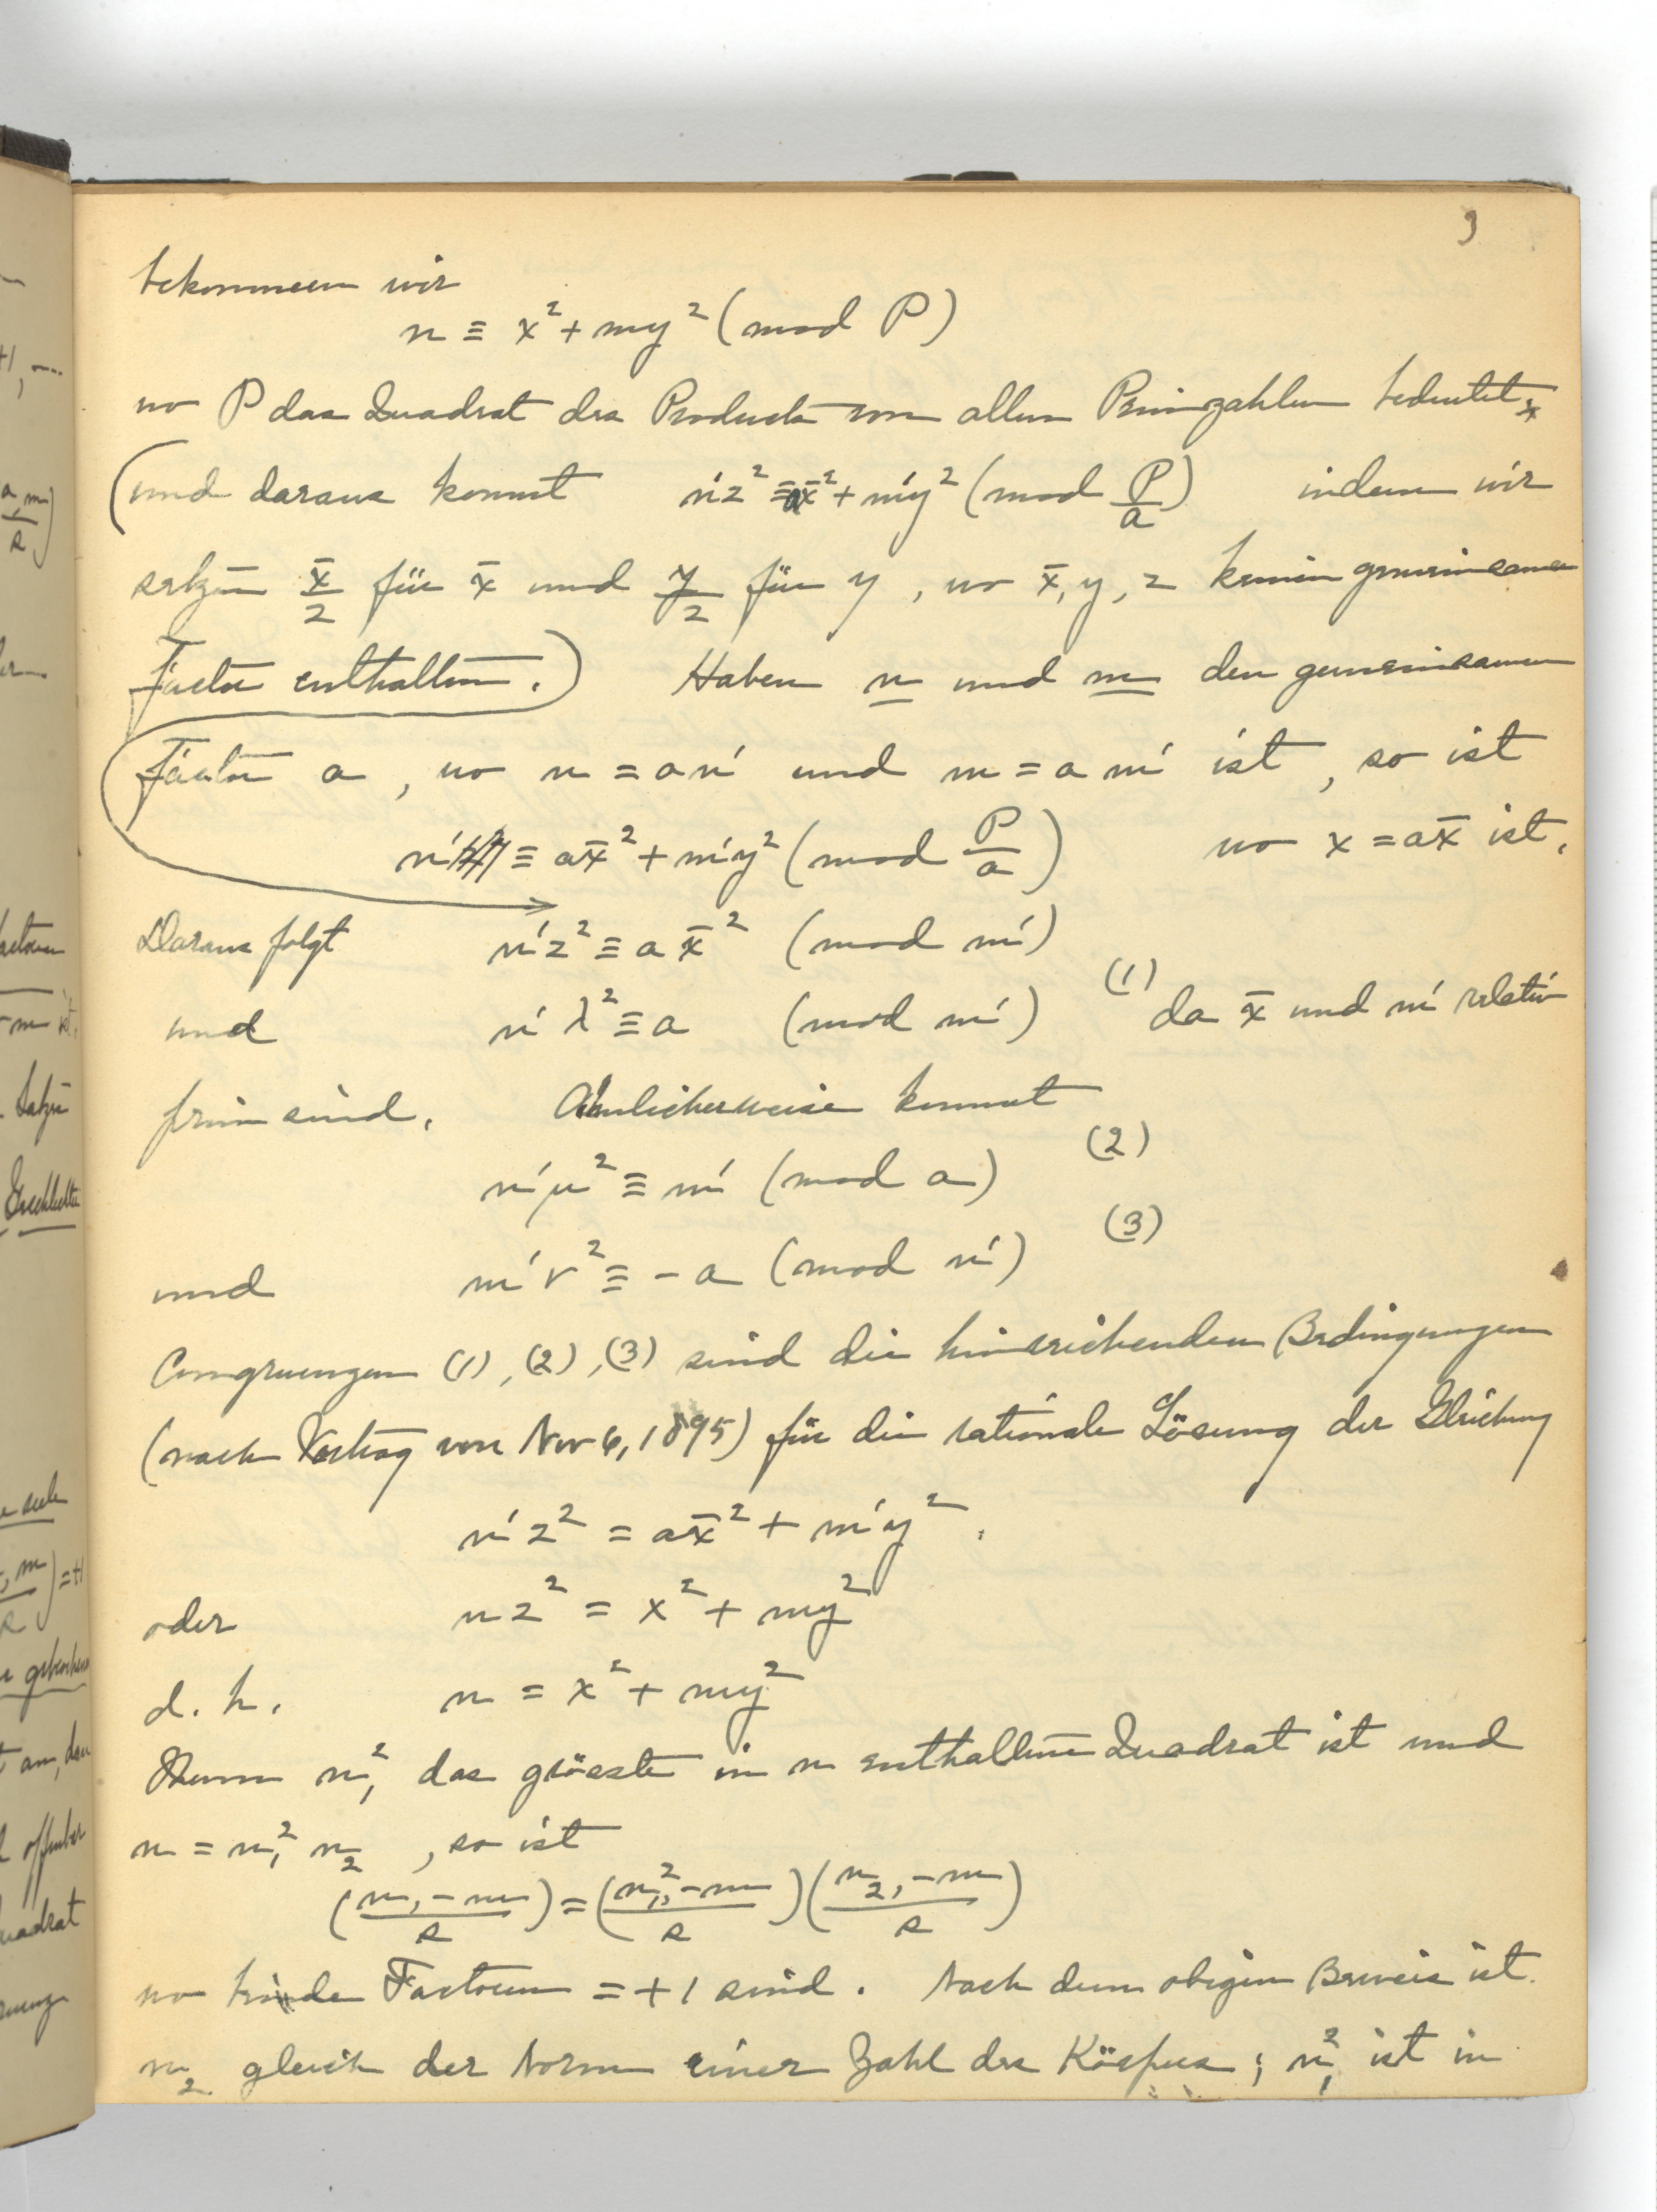 9
bekommen wir
n ≡ x² + my² (mod P)
wo P das Quadrat des Products von allen Primzahlen bedeutet,
(und daraus kommt n'z² ≡ ax̄² + m'y² (mod P/a) indem wir
setzen x̄/z für x̄ und y/z für y, wo x̄, y, z keinen gemeinsamen
Factor enthalten.) Haben n und m den gemeinsamen
Factor a, wo n = an' und m = am' ist, so ist
n' ≡ ax̄² + m'y² (mod P/a) wo x = ax̄ ist.
Daraus folgt n'z² ≡ ax̄² (mod m')
und n'λ² ≡ a (mod m') (1) da x̄ und m' relativ
prim sind. Ähnlicherweise kommt
n'μ² ≡ m' (mod a) (2)
und m'ν² ≡ -a (mod n') (3)
Congruenzen (1), (2), (3) sind die hinreichenden Bedingungen
(nach Vortrag von Nov 6, 1895) für die rationale Lösung der Gleichung
n'z² = ax̄² + m'y².
oder nz² = x² + my²
d. h. n = x² + my²
Wenn n₁² das grösste in n enthaltene Quadrat ist und
n = n₁² n₂, so ist
(n, -m / s) = (n₁², -m / s)(n₂, -m / s)
wo beide Factoren = +1 sind. Nach dem obigen Beweis ist
n₂ gleich der Norm einer Zahl des Körpers; n₁² ist in
+1, ...
a, m
s
Factoren
-m ist.
Satze
Geschlechter
, m) = +1
s
offenbar
Quadrat